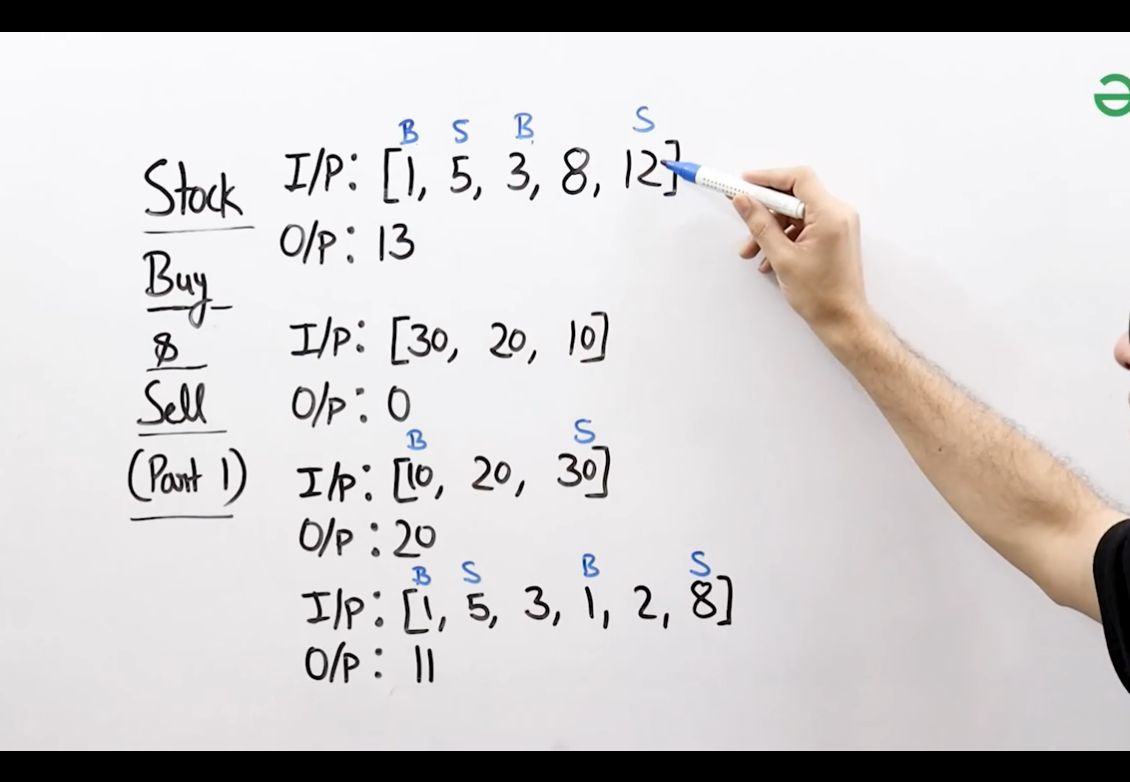 Stock
Buy
&
Sell
(Part 1)
B S B S
I/P: [1, 5, 3, 8, 12]
O/P: 13
I/P: [30, 20, 10]
O/P: 0
B S
I/P: [10, 20, 30]
O/P: 20
B S B S
I/P: [1, 5, 3, 1, 2, 8]
O/P: 11